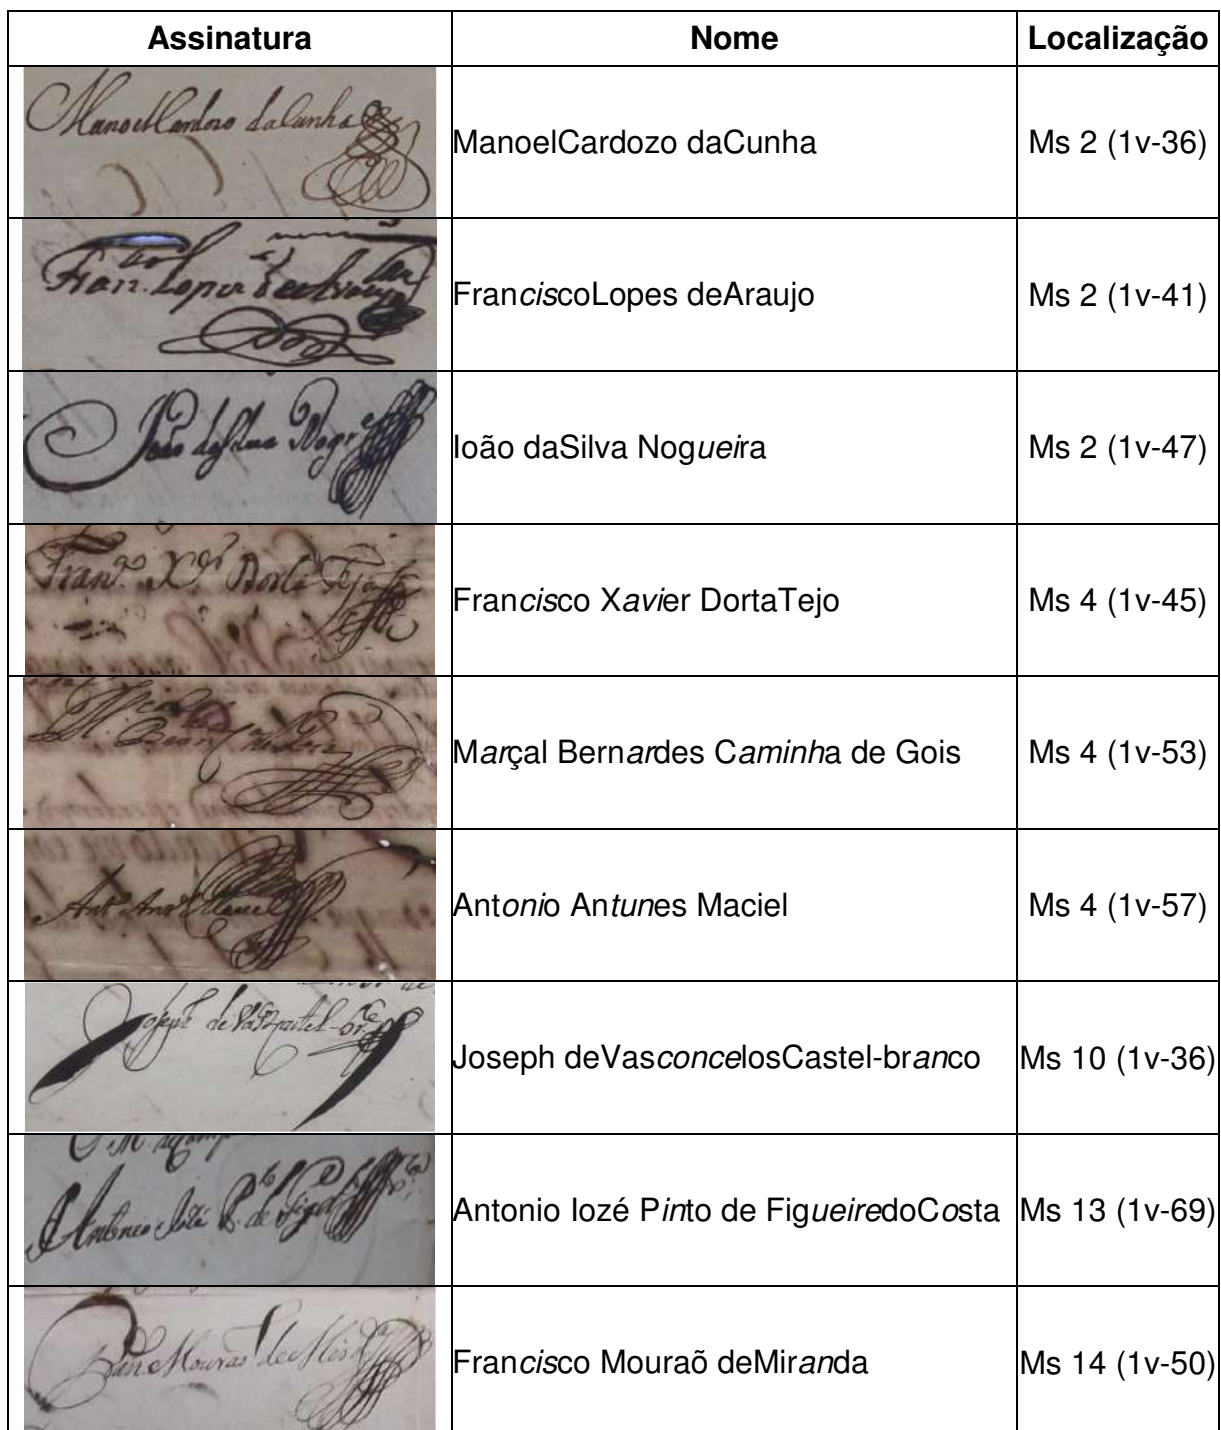 Assinatura Nome Localização
Manoel Cardozo da Cunha ManoelCardozo daCunha Ms 2 (1v-36)
Fran.co Lopes de Araujo FranciscoLopes deAraujo Ms 2 (1v-41)
João da Silva Nogr.a Ioão daSilva Nogueira Ms 2 (1v-47)
Fran.co X.er Dorta Tejo Francisco Xavier DortaTejo Ms 4 (1v-45)
Marçal Bernardes Caminha de Gois Ms 4 (1v-53)
Ant.o Ant.es Maciel Antonio Antunes Maciel Ms 4 (1v-57)
Joseph de Vas.los Castel-br.co Joseph deVasconcelosCastel-branco Ms 10 (1v-36)
Antonio Iozé P.to de Figdo Antonio Iozé Pinto de FigueiredoCosta Ms 13 (1v-69)
Fran.co Mouraõ de Mir.da Francisco Mouraõ deMiranda Ms 14 (1v-50)